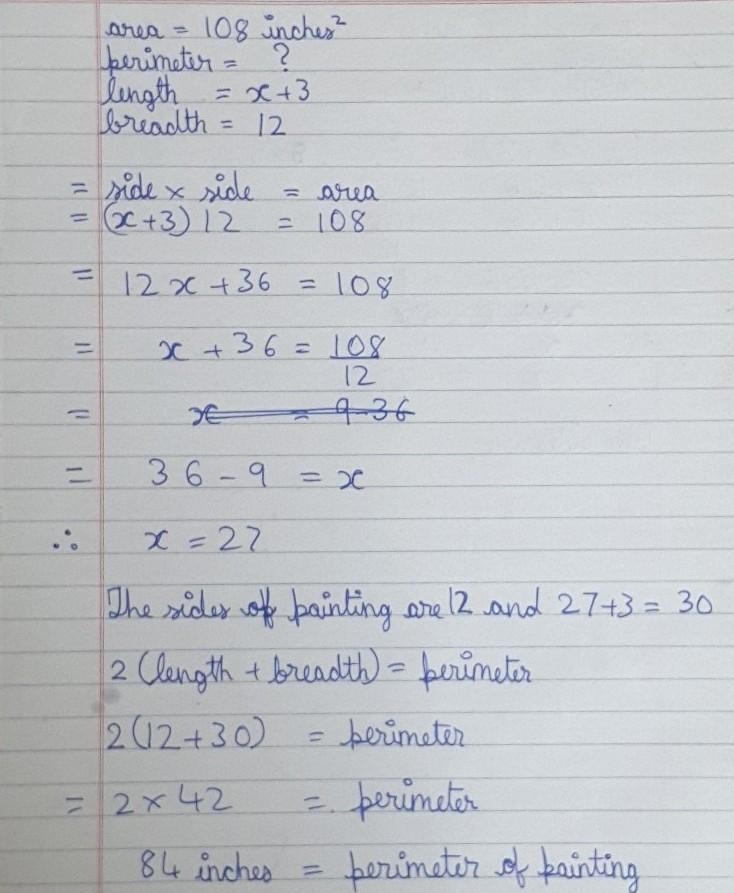 area = 108 inches²
perimeter = ?
length = x+3
breadth = 12
= side × side = area
= (x+3) 12 = 108
= 12x + 36 = 108
= x + 36 = 108/12
= x = 9-36
= 36 - 9 = x
∴ x = 27
The sides of painting are 12 and 27+3 = 30
2 (length + breadth) = perimeter
2(12+30) = perimeter
= 2 × 42 = perimeter
84 inches = perimeter of painting